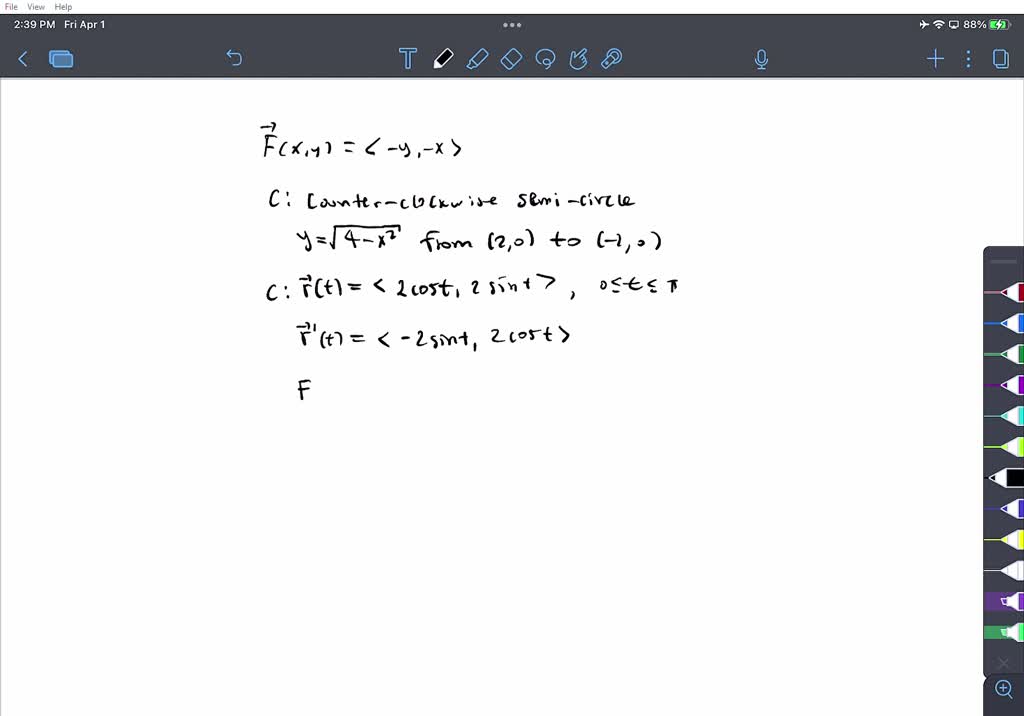 File View Help
2:39 PM Fri Apr 1
88%
T
F⃗(x,y) = < -y, -x >
C: Counter-clockwise semi-circle
y = √(4-x²) from (2,0) to (-2,0)
C: r⃗(t) = < 2cost, 2sint > , 0≤t≤π
r⃗'(t) = < -2sint, 2cost >
F